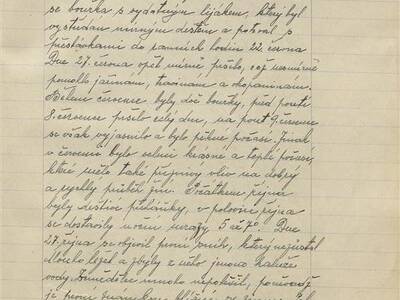 se bouřka s vydatným lijákem, který byl
vystřídán mírným deštěm a potrval s
přestávkami do ranních hodin 22. června
Dne 27. června opět mírně pršelo, což nesmírně
pomohlo jařinám, travinám a okopaninám.
Během července byly dvě bouřky, před poutí
8. července pršelo celý den, na pouť 9. července
se však vyjasnilo a bylo pěkné počasí. Jinak
v červenci bylo velmi krásné a teplé počasí,
které mělo také příznivý vliv na dobrý
a rychlý průběh žní. Počátkem října
byly deštivé přeháňky, v polovině října
se dostavily noční mrazy 5 až 7°. Dne
27. října se objevil první sníh, který nezůstal
dlouho ležet a zbyly z něho jenom kaluže
vody. Zemědělce mnoho nepotěšil, poněvadž
je první